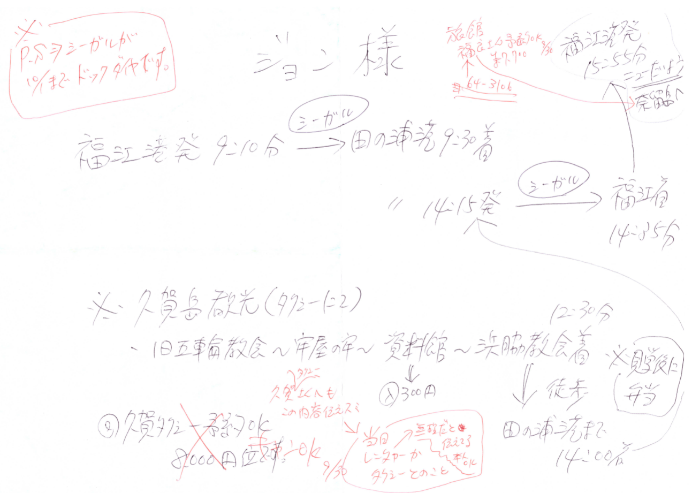 ※
P.S シーガルが
10/1まで ドックダイヤです。
ジョン様
旅館
福江港発
15:55分
ニューたいよう
奈留へ
シーガル
福江港発 9:10分 → 田の浦港 9:30着
〃 14:15発
シーガル
福江着
14:35分
※ 久賀島観光(タクシーにて)
12:30分
・旧五輪教会~牢屋の窄~資料館~浜脇教会着
※見学後に
弁当
300円
徒歩
田の浦港まで
14:00着
久賀タクシー
8,000円
OK
この内容伝えてる
9/30
当日
レンタカーか
タクシーとのこと
無理だと
伝えてる